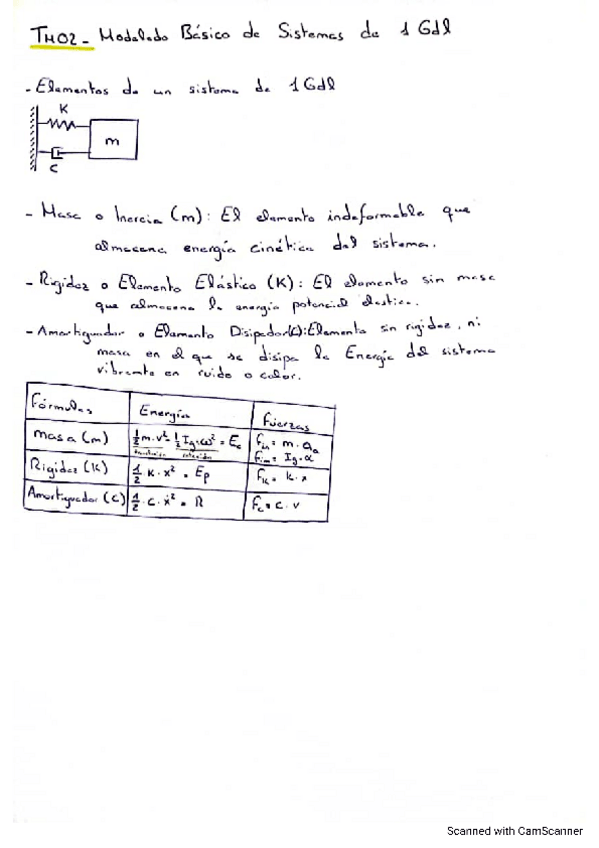 TM02- Modelado Básico de Sistemas de 1 Gdl
- Elementos de un sistema de 1 Gdl
K
m
C
- Masa o Inercia (m): El elemento indeformable que
almacena energía cinética del sistema.
- Rigidez o Elemento Elástico (K): El elemento sin masa
que almacena la energía potencial elástica.
- Amortiguador o Elemento Disipador(c): Elemento sin rigidez, ni
masa en el que se disipa la Energía del sistema
vibrante en ruido o calor.
Fórmulas Energía Fuerzas
Masa (m) ½ m·v² ½ IG·ω² = Ec Fin = m·aG
traslación rotación Fim = IG·α
Rigidez (K) ½·K·x² = Ep FK = K·x
Amortiguador (C) ½·C·ẋ² = R Fc = C·v
Scanned with CamScanner